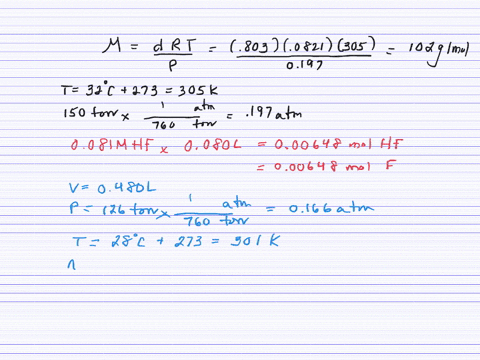 M = dRT / P = (.803)(.0821)(305) / 0.197 = 102 g/mol
T = 32°C + 273 = 305 K
150 torr × 1 atm / 760 torr = .197 atm
0.081 M HF × 0.080L = 0.00648 mol HF
= 0.00648 mol F
V = 0.480L
P = 126 torr × 1 atm / 760 torr = 0.166 atm
T = 28°C + 273 = 301 K